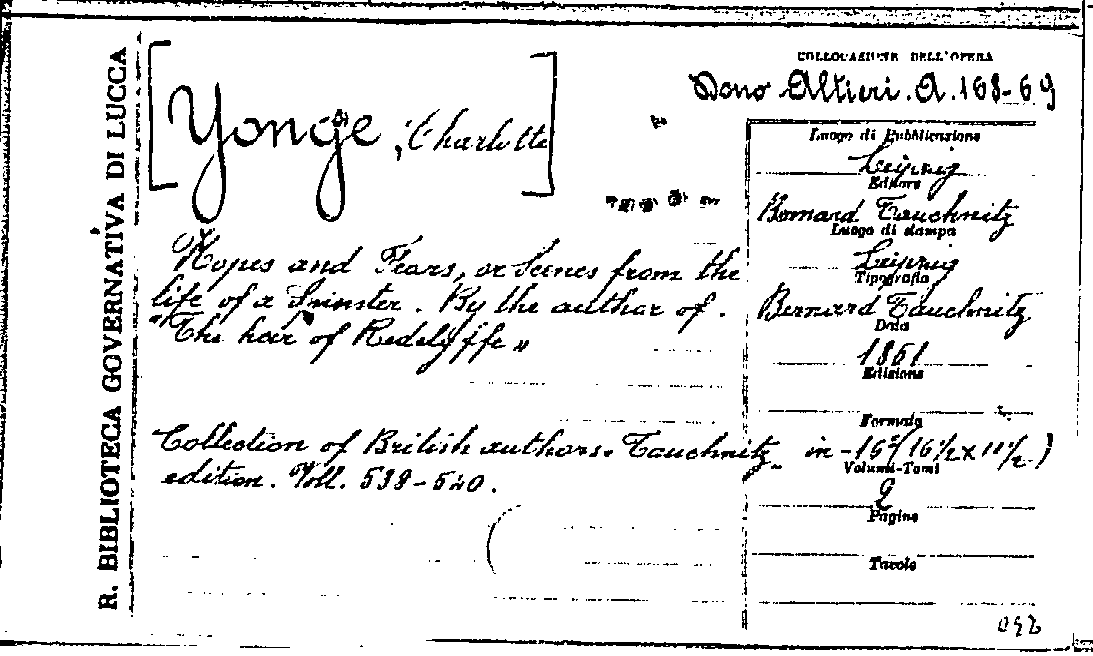 R. BIBLIOTECA GOVERNATIVA DI LUCCA
[Yonge, Charlotte]
Hopes and Fears, or Scenes from the
life of a Spinster. By the author of.
"The heir of Redelyffe„
Collection of British authors. Tauchnitz
edition. Voll. 539-540.
COLLOCAZIONE DELL'OPERA
Dono Altieri. A. 168-69
Luogo di Pubblicazione
Leipzig
Editore
Bernard Tauchnitz
Luogo di stampa
Leipzig
Tipografia
Bernard Tauchnitz
Data
1861
Edizione
Formato
in-16º (16½ x 11½)
Volumi-Tomi
2
Pagine
Tavole